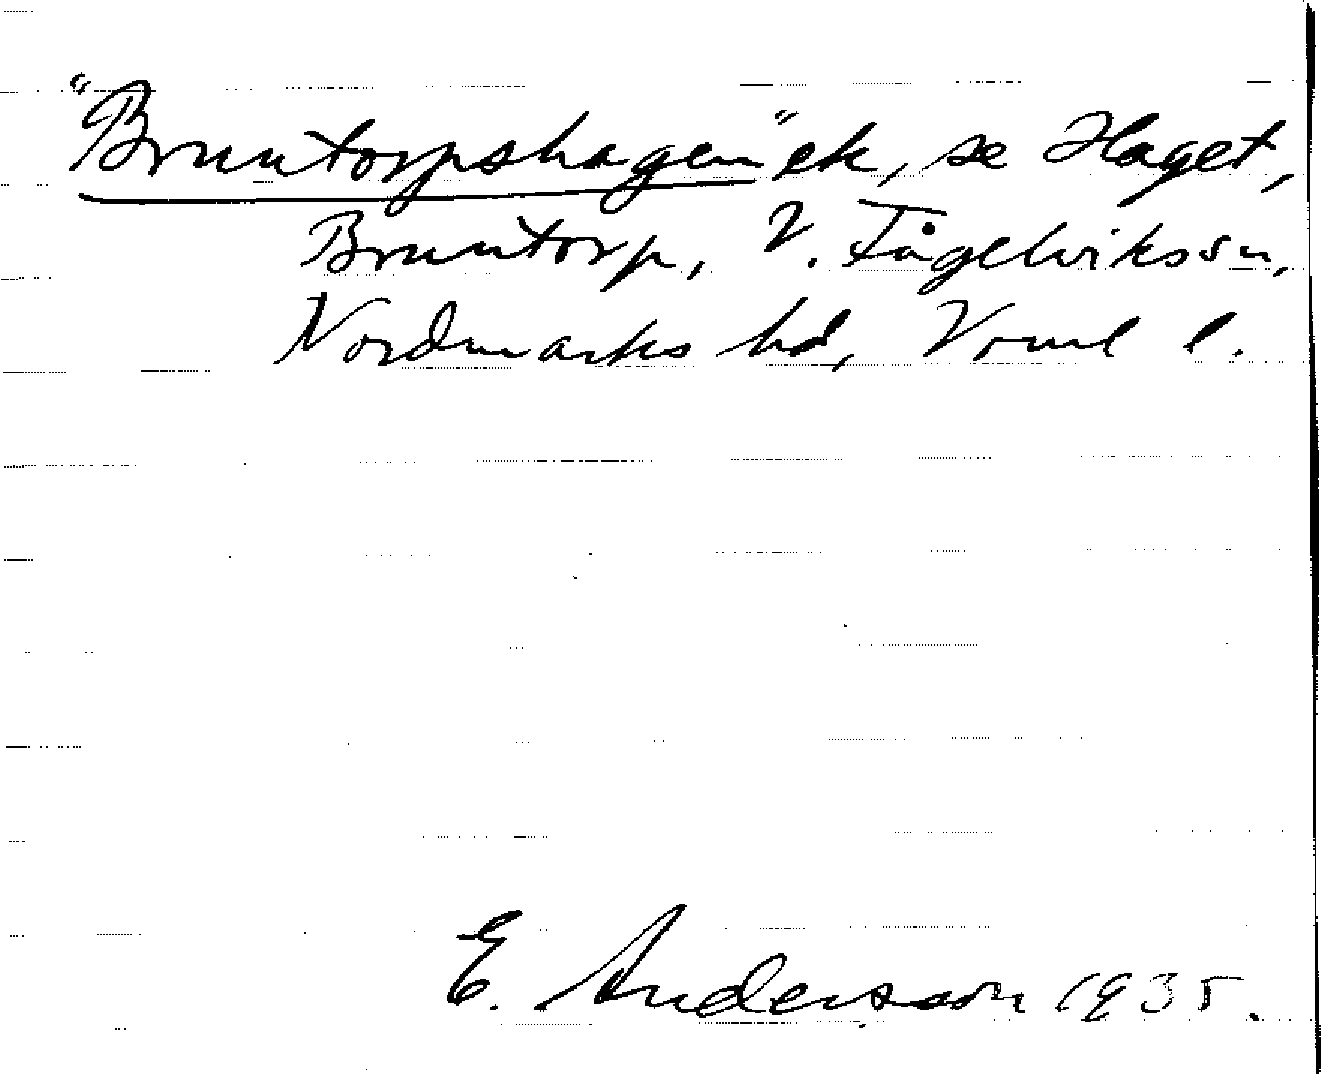 "Bruntorpshagen" ek, se Haget,
Bruntorp, V. Fågelvikssn,
Nordmarks hd, Vrml l.
E. Andersson 1935.